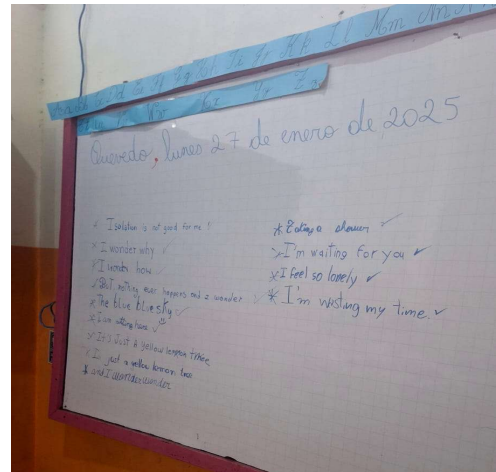 Kk Ll Mm
Quevedo, lunes 27 de enero de 2025
Isolation is not good for me!
I wonder why
I wonder how
But nothing ever happens and I wonder
The blue blue sky
I am sitting here
It's Just A yellow lemon tree
I just a yellow lemon tree
and I wonder wonder
a shower
I'm waiting for you
I feel so lonely
I'm wasting my time.